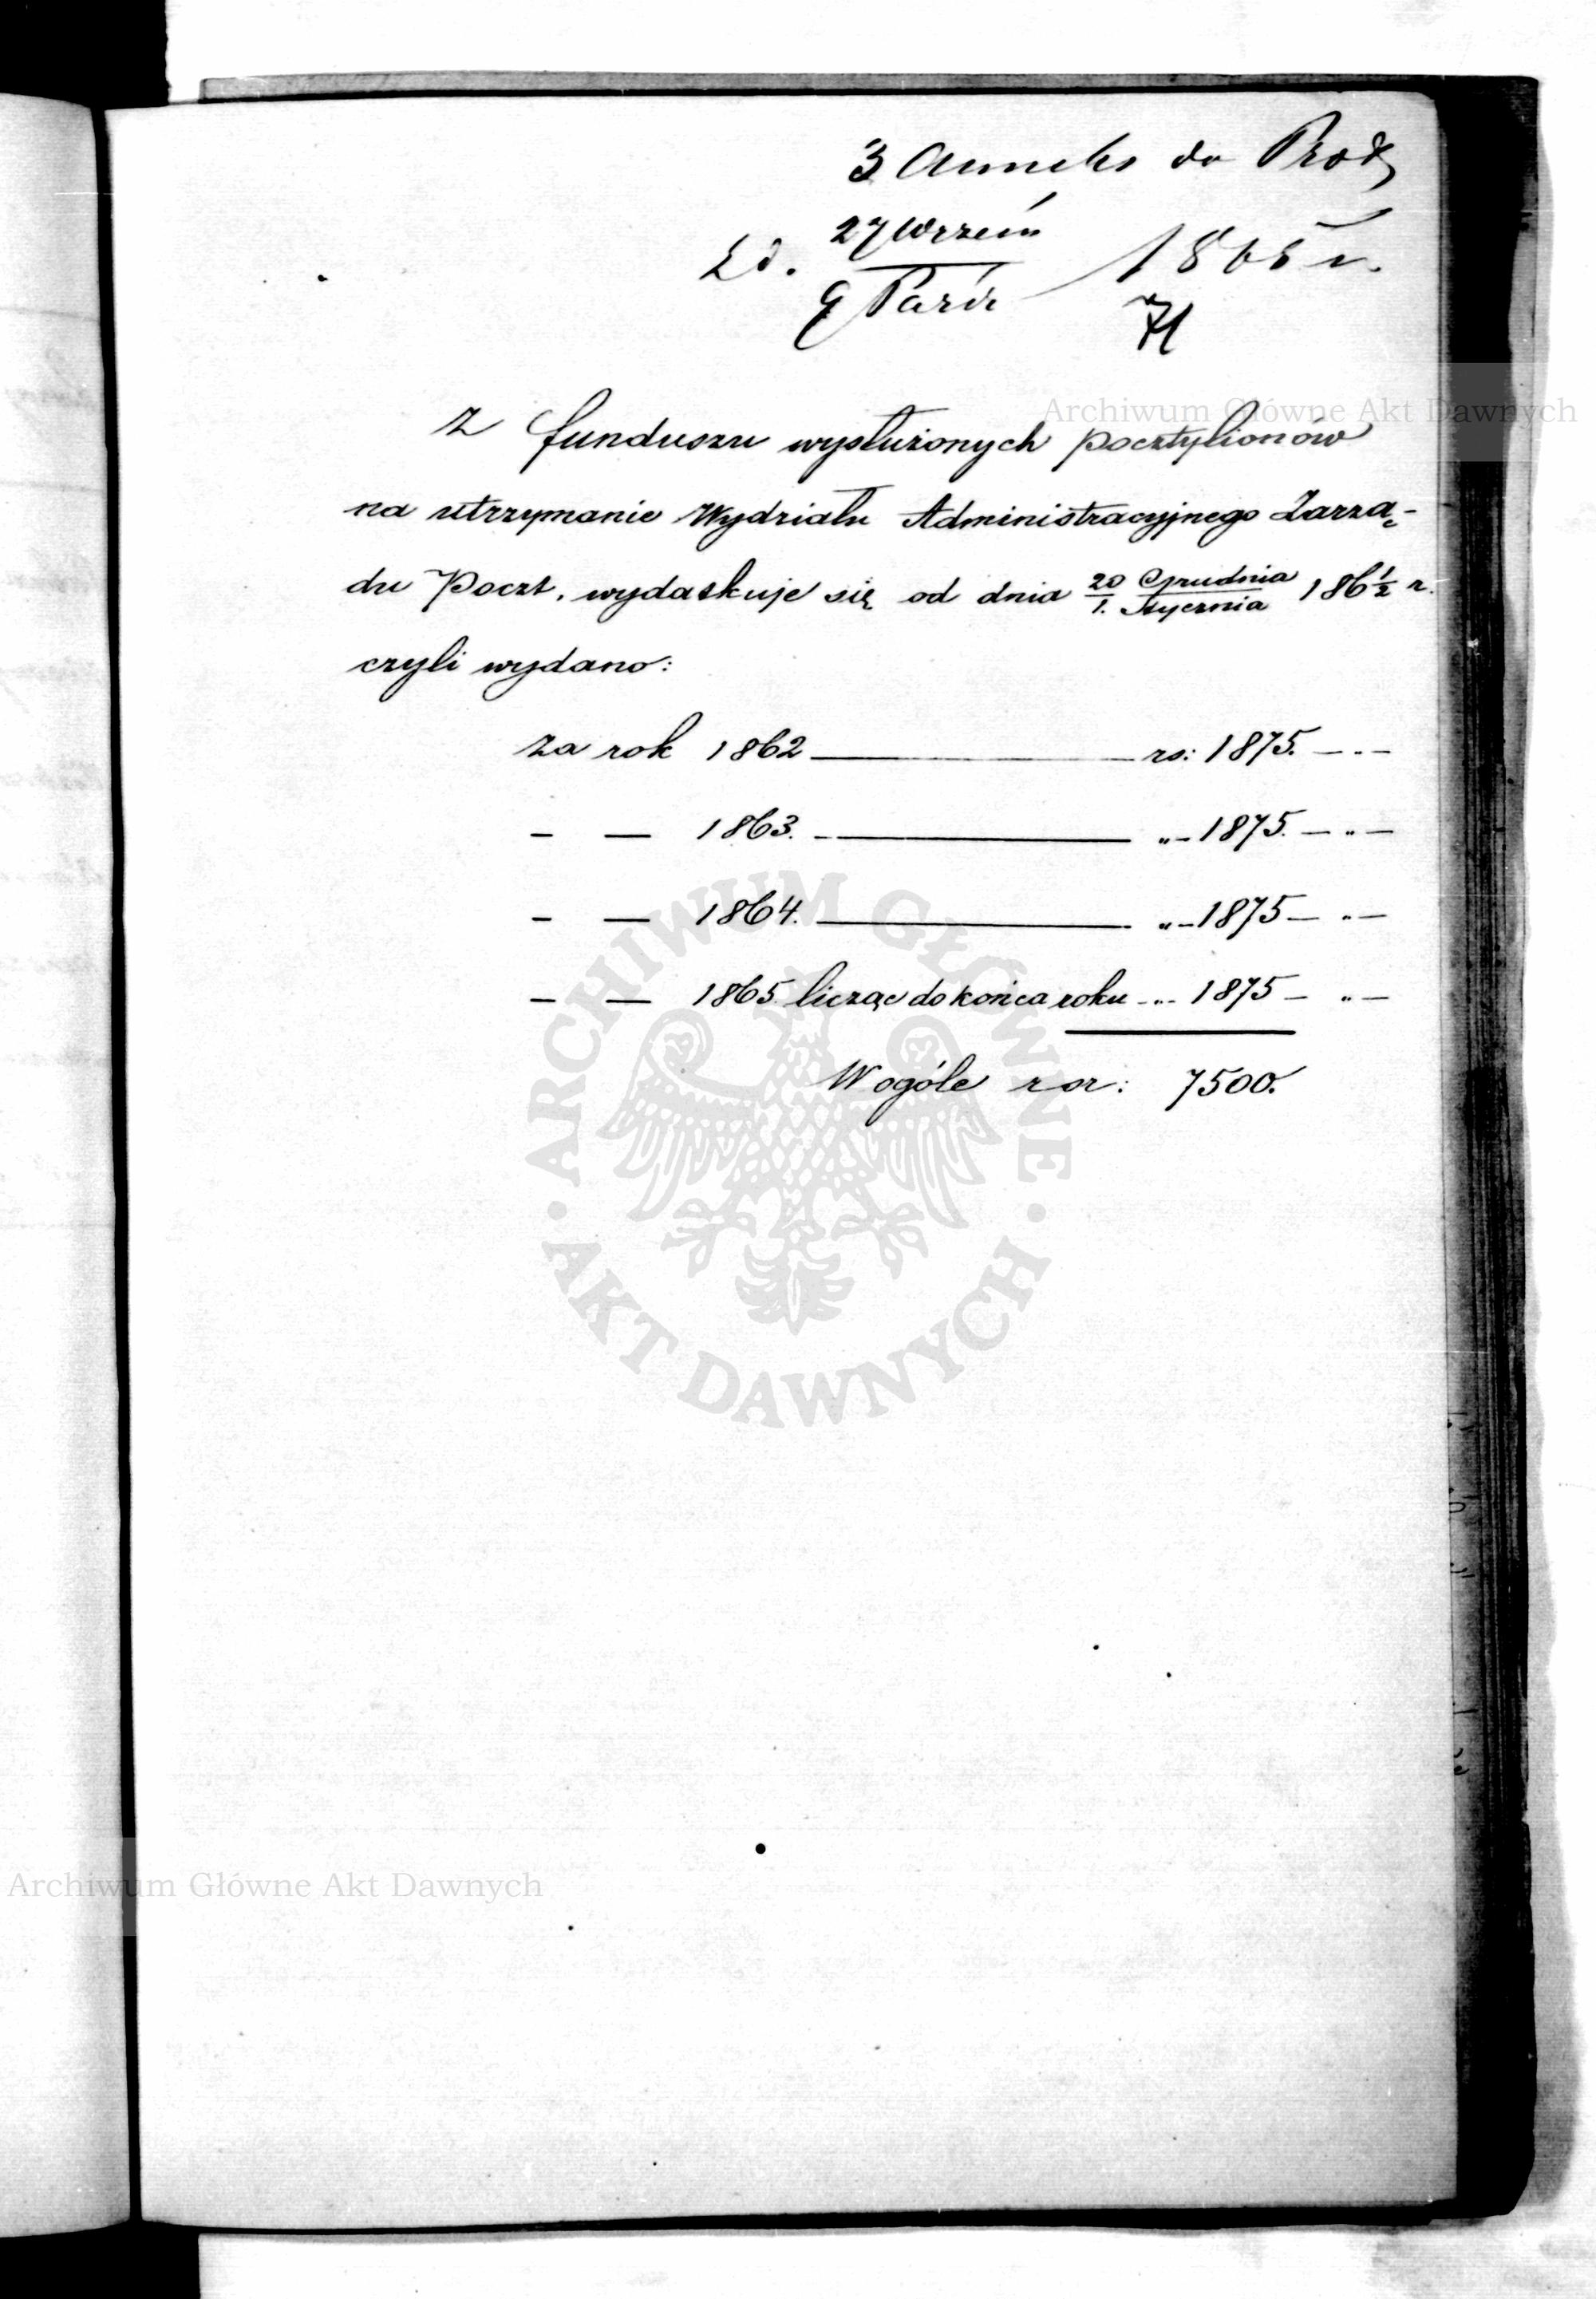 3 Anneks do Prot
Zd. 27 Wrześn / 9 Paźdz 1865 r.
71
Archiwum Główne Akt Dawnych
Z funduszu wysłużonych pocztylionów
na utrzymanie Wydziału Administracyjnego Zarzą-
du Poczt. wydatkuje się od dnia 20 Grudnia / 1. Stycznia 186 1/2 r.
czyli wydano:
Za rok 1862 — rs: 1875. — . —
- — 1863. — „ — 1875. — „ —
- — 1864. — „ — 1875 — „ —
- — 1865 licząc do końca roku - „ - 1875 — „ —
W ogóle rsr: 7500.
ARCHIWUM GŁÓWNE · AKT DAWNYCH ·
Archiwum Główne Akt Dawnych